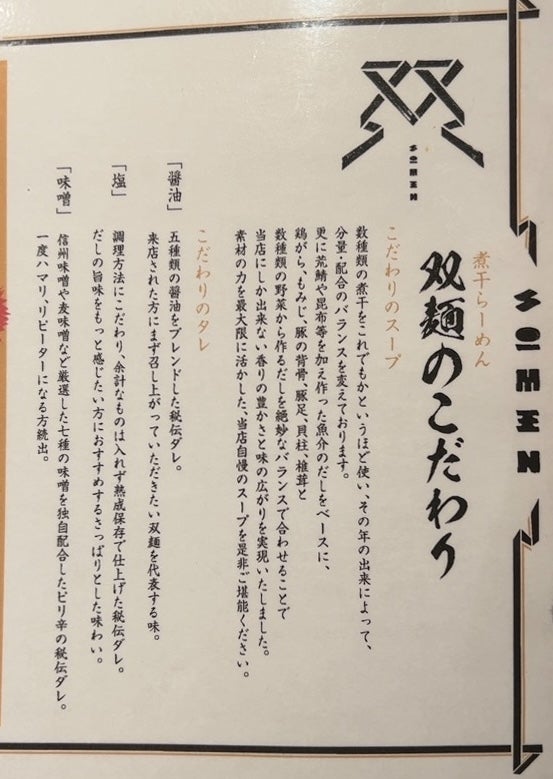 SOHMEN
煮干らーめん
双麺のこだわり
双
こだわりのスープ
数種類の煮干をこれでもかというほど使い、その年の出来によって、
分量・配合のバランスを変えております。
更に荒鯖や昆布等を加え作った魚介のだしをベースに、
鶏がら、もみじ、豚の背骨、豚足、貝柱、椎茸と
数種類の野菜から作るだしを絶妙なバランスで合わせることで
当店にしか出来ない香りの豊かさと味の広がりを実現いたしました。
素材の力を最大限に活かした、当店自慢のスープを是非ご堪能ください。
こだわりのタレ
「醤油」 五種類の醤油をブレンドした秘伝ダレ。
来店された方にまず召し上がっていただきたい双麺を代表する味。
「塩」 調理方法にこだわり、余計なものは入れず熟成保存で仕上げた秘伝ダレ。
だしの旨味をもっと感じたい方におすすめするさっぱりとした味わい。
「味噌」 信州味噌や麦味噌など厳選した七種の味噌を独自配合したピリ辛の秘伝ダレ。
一度ハマリ、リピーターになる方続出。